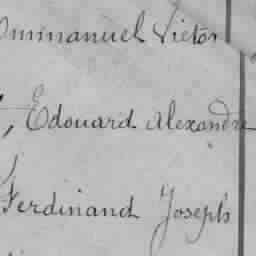 Emmanuel Victor
, Edouard Alexandre
Ferdinand Joseph